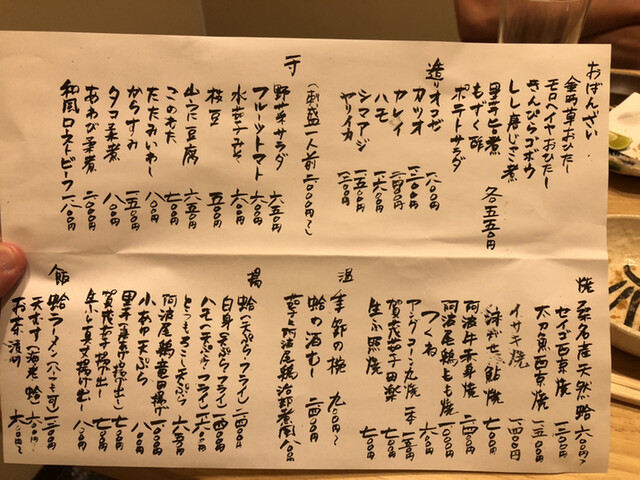 おばんざい
金時草おひたし
モロヘイヤおひたし
きんぴらゴボウ
しし唐じゃこ煮
里芋旨煮
もずく酢
ポテトサラダ
各五五〇円
造り
オコゼ 一八〇〇
カツオ 一二〇〇円
カレイ 一四〇〇円
ハモ 一六〇〇
シマアジ 一五〇〇円
ヤリイカ 一二〇〇
(刺盛一人前 二〇〇〇円〜)
寸
野菜サラダ 六五〇
フルーツトマト 六〇〇円
水茄子みそ 六〇〇
枝豆 五〇〇円
山うに豆腐 六五〇
このわた 七〇〇円
たたみいわし 八〇〇
からすみ 一五〇〇円
タコ柔煮 八〇〇
あわび柔煮 二〇〇〇円
和風ローストビーフ 一八〇〇円
焼
桑名産天然蛤 六〇〇円〜
セイゴ西京焼 一三〇〇円
太刀魚西京焼 一五〇〇
イサキ焼 一四〇〇円
鮎焼 七〇〇
阿波牛赤身焼 二四〇〇円
阿波尾鶏もも焼 一〇〇〇
つくね 六〇〇
ヤングコーン丸焼 一本 二五〇円
賀茂茄子田楽 七〇〇
生ふ照焼 七〇〇円
温
季節の椀 九〇〇円〜
蛤の酒むし 二四〇〇円
茄子と阿波尾鶏治部煮風 八〇〇円
揚
蛤(天ぷら、フライ) 二四〇〇円
白身(天ぷら、フライ) 一四〇〇円
ハモ(天ぷら、フライ) 一六〇〇
とうもろこし天ぷら 六五〇円
阿波尾鶏竜田揚げ 一〇〇〇円
小あゆ天ぷら 八〇〇
里芋(唐揚げ、揚げ出し) 七五〇円
賀茂茄子揚げ出し 七〇〇
生ふと真丈揚げ出し 八〇〇円
飯
蛤ラーメン(ハーフも可) 一二〇〇円
天むす(海老、蛤) 六〇〇円〜
お茶漬け 六〇〇〜